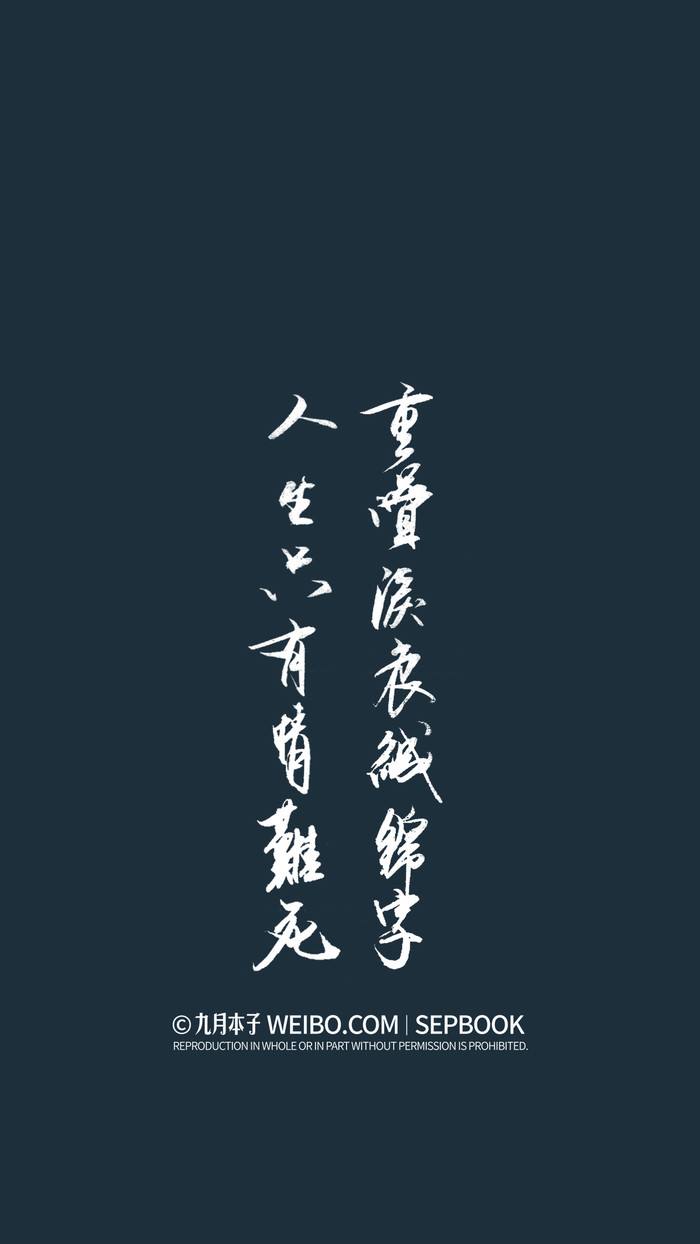 重疊淚痕緘錦字
人生只有情難死
© 九月本子 WEIBO.COM | SEPBOOK
REPRODUCTION IN WHOLE OR IN PART WITHOUT PERMISSION IS PROHIBITED.